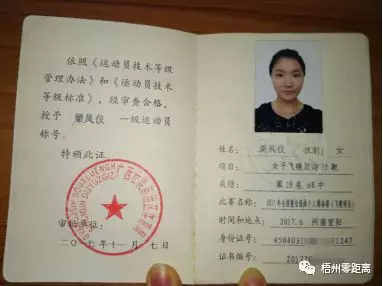 依照《运动员技术等级
管理办法》和《运动员技术
等级标准》，经审查合格，
授予 梁凤仪 一级运动员
称号。
特颁此证。
审批单位：
二〇一七年十一月七日
姓名： 梁凤仪 性别： 女
项目： 女子飞碟双向75靶
成绩： 第19名 68中
比赛名称：
时间和地点： 2017.6 河南宜阳
身份证号： 4504031 1247
证书编号：
梧州零距离